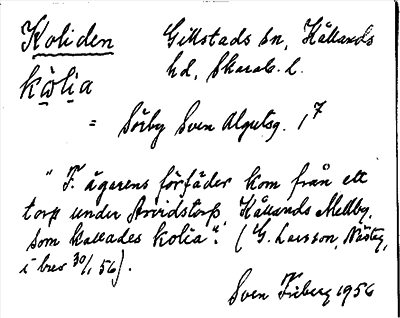 Koliden Gillstads sn, Kållands
hd, Skarab. l.
kòlia
= Sörby Sven Algutsg. 1/7
" F. ägarens förfäder kom från ett
torp under Arvidstorp, Kållands Mellby,
som kallades Kolia". (G. Larsson, Nästeg.,
i brev 30/1 56).
Sven Friberg 1956